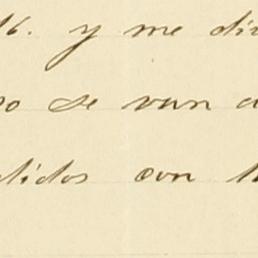 16. y me di
o se van a
didos con l